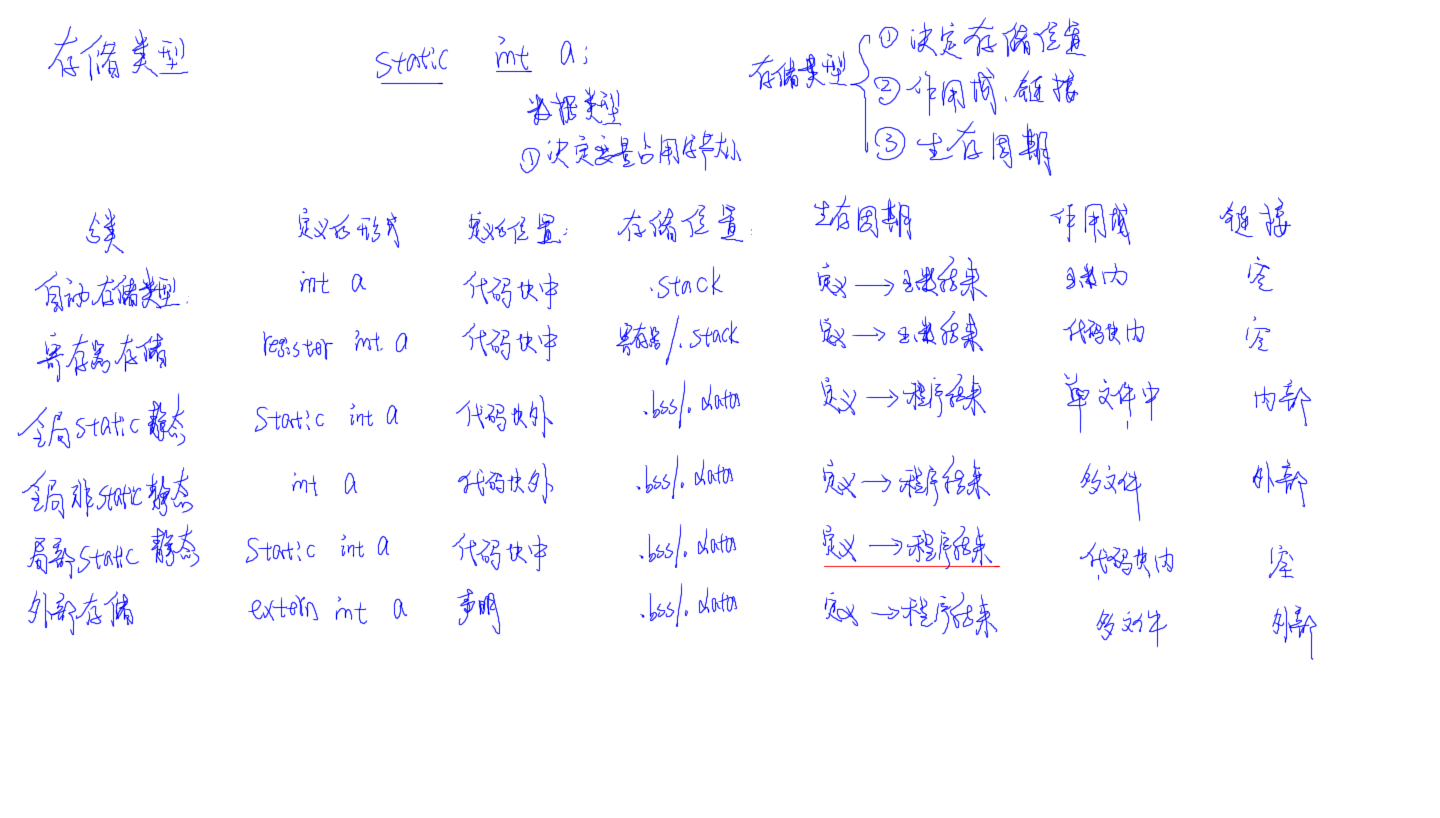 存储类型 static int a; 存储类型 ① 决定存储位置
数据类型 ② 作用域、链接
① 决定变量占用字节大小 ③ 生存周期
分类 定义的形式 定义的位置: 存储位置: 生存周期 作用域 链接
自动存储类型: int a 代码块中 .stack 定义→ 结束 内 空
寄存器存储 register int a 代码块中 寄存器/.stack 定义→ 结束 代码块内 空
全局static静态 Static int a 代码块外 .bss/.data 定义→程序结束 单文件中 内部
全局非static静态 int a 代码块外 .bss/.data 定义→程序结束 多文件 外部
局部static静态 Static int a 代码块中 .bss/.data 定义→程序结束 代码块内 空
外部存储 extern int a 声明 .bss/.data 定义→程序结束 多文件 外部